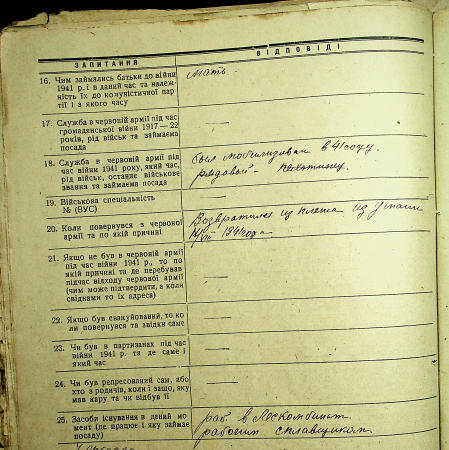 ЗАПИТАННЯ
ВІДПОВІДІ
16. Чим займались батьки до війни
1941 р. і в даний час та належ-
ність їх до комуністичної пар-
тії і з якого часу
мать.
17. Служба в червоній армії під час
громадянської війни 1917—22
років, рід військ та займаєма
посада
—
18. Служба в червоній армії під
час війни 1941 року, який час,
рід військ, останнє військове
звання та займаєма посада
был мобилизован в 41 году.
рядовой - пехотинец.
19. Військова спеціальність
№ (ВУС)
20. Коли повернувся з червоної
армії та по якій причині
Возвратился из плена из
VIII 1941 года
21. Якщо не був в червоній армії
під час війни 1941 р., то по
якій причині та де перебував
підчас відходу червоної армії
(чим може підтвердити, а коли
свідками то їх адреса)
—
22. Якщо був евакуйований, то ко-
ли повернувся та звідки саме
—
23. Чи був в партизанах під час
війни 1941 р. та де саме і
який час
—
24. Чи був репресований сам, або
хто з родичів, коли і защо, яку
мав кару та чи відбув її
—
25. Засоби існування в даний мо-
мент (де працює і яку займає
посаду)
раб. в Лескомбинат
рабочим сплавщиком